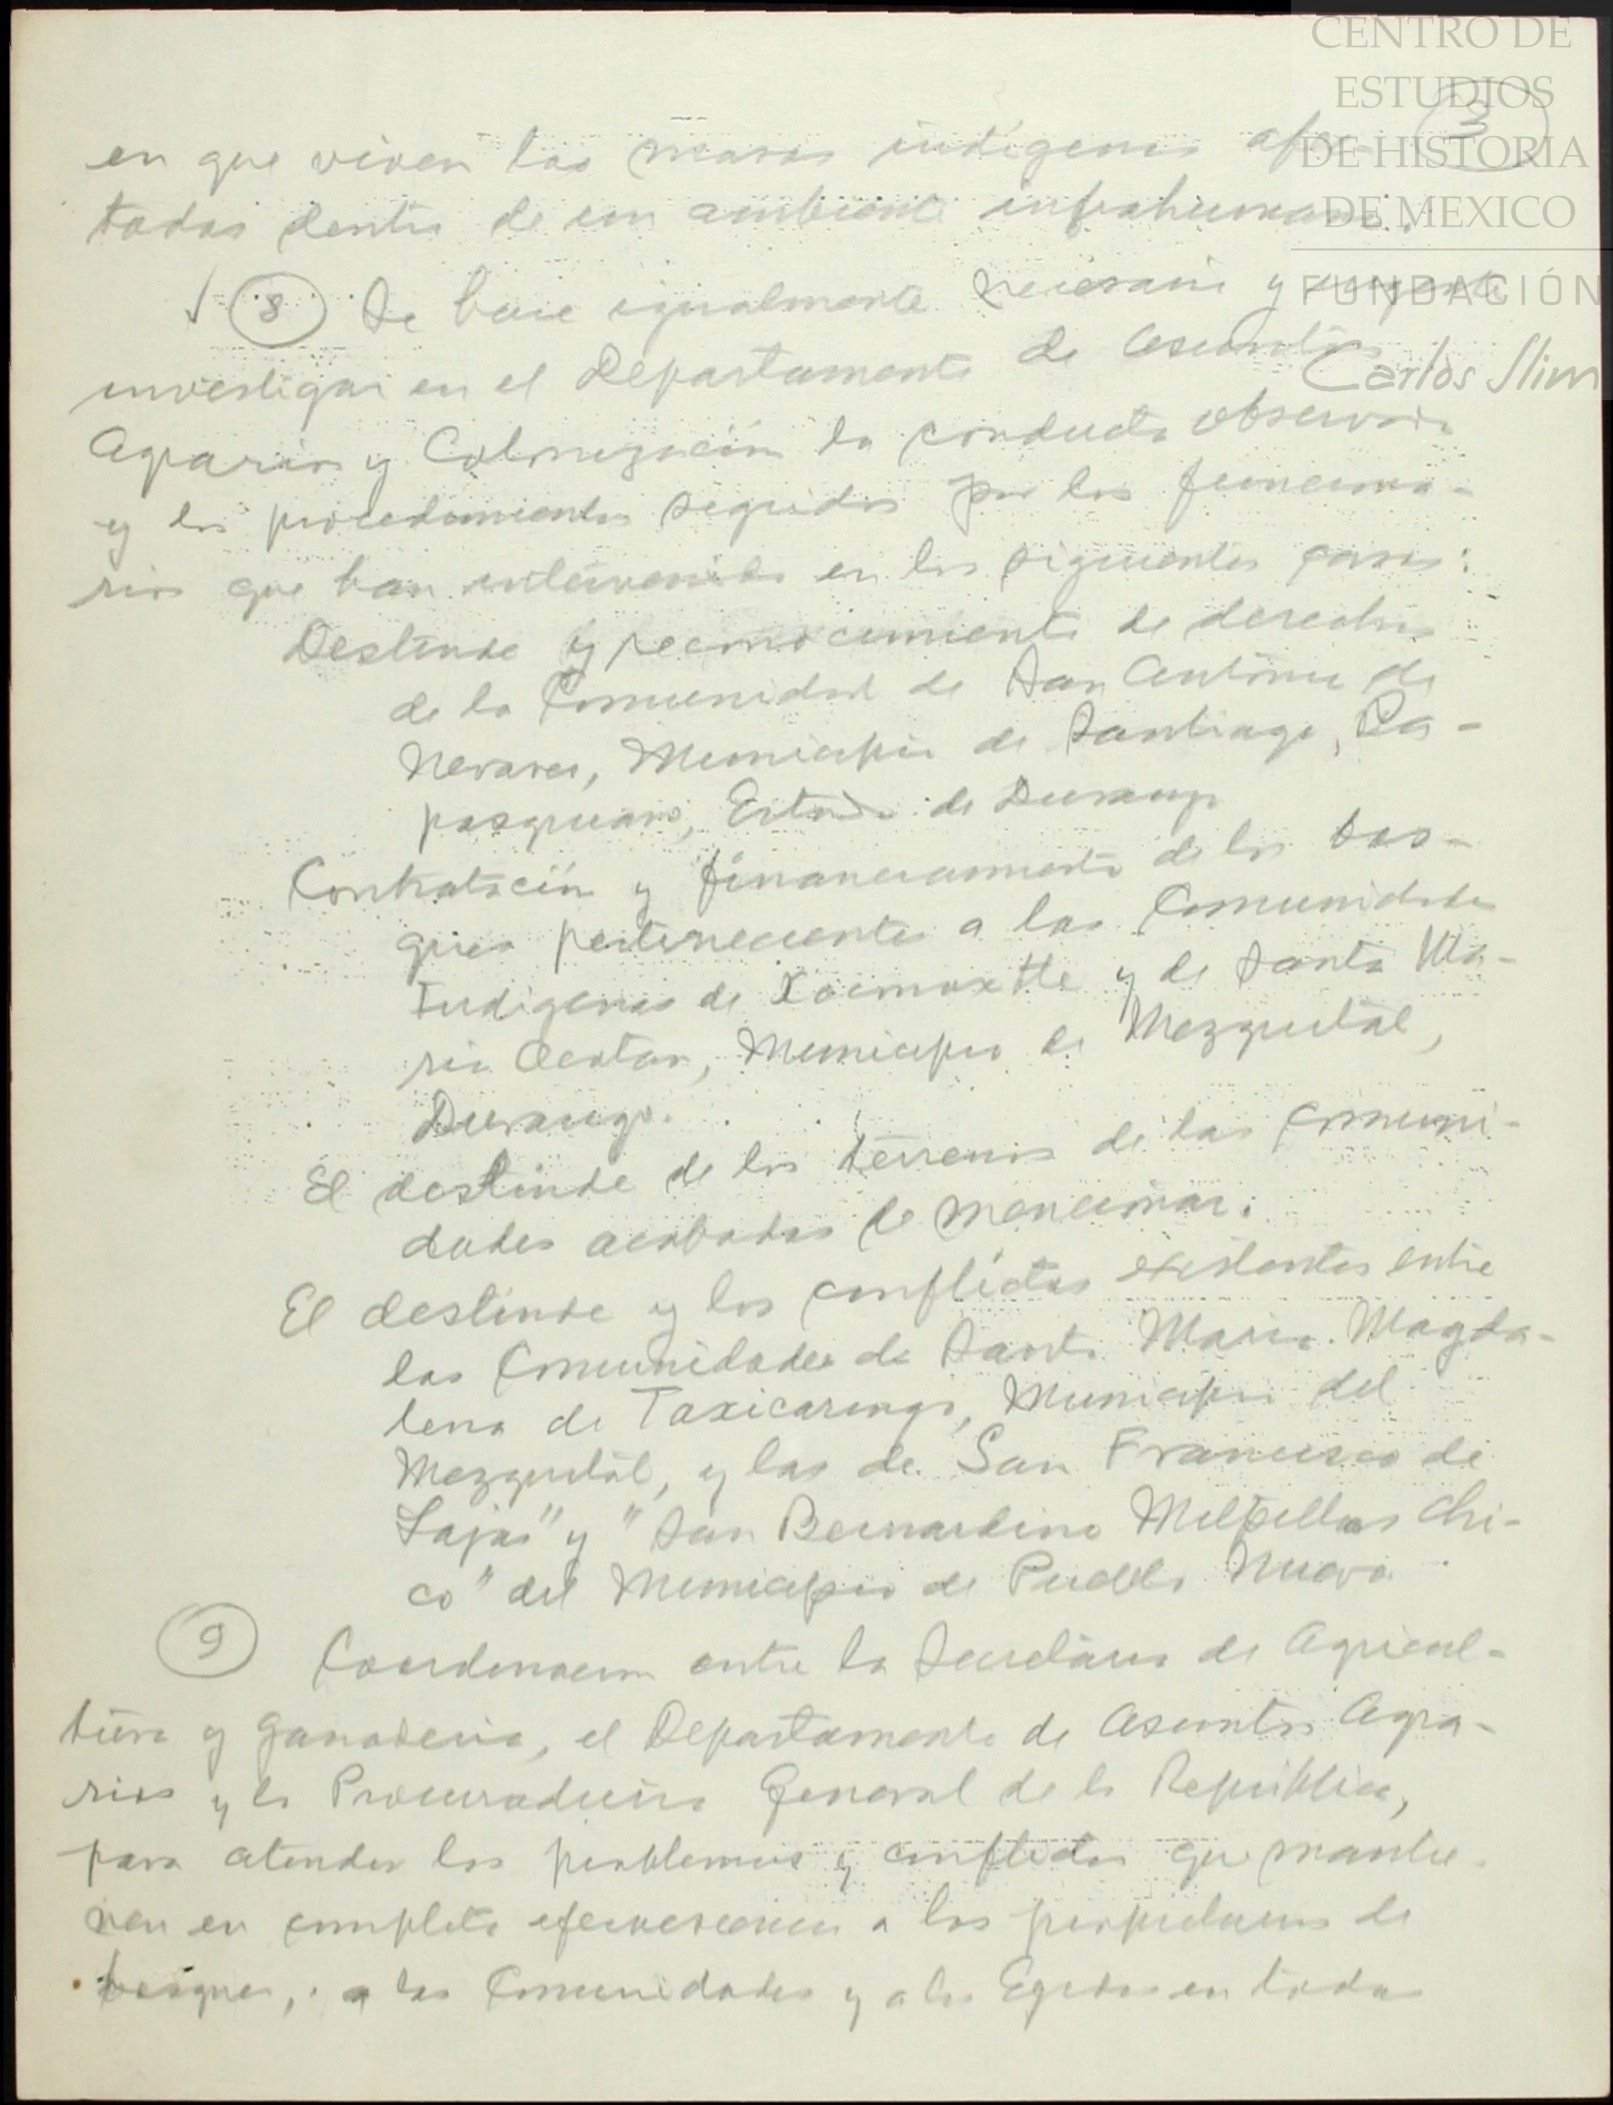 CENTRO DE
ESTUDIOS
DE HISTORIA
DE MEXICO
FUNDACIÓN
Carlos Slim
3
en que viven las masas indígenas afec-
tadas dentro de un ambiente infrahumano.
8 Se hace igualmente necesario y urgente
investigar en el Departamento de Asuntos
Agrarios y Colonización la conducta observada
y los procedimientos seguidos por los funciona-
rios que han intervenido en los siguientes casos:
Deslinde y reconocimiento de derechos
de la Comunidad de San Antonio de
Nevarez, Municipio de Santiago, Pa-
pasquiaro, Estado de Durango
Contratación y financiamiento de los bos-
ques pertenecientes a las Comunidades
Indígenas de Xocinoxtle y de Santa Ma-
ria Ocotan, Municipio de Mezquital,
Durango.
El deslinde de los terrenos de las comuni-
dades acabadas de mencionar.
El deslinde y los conflictos existentes entre
las Comunidades de Santa Maria Magda-
lena de Taxicaringa, Municipio del
Mezquital, y las de San Francisco de
Lajas" y "San Bernardino Milpillas Chi-
co" del Municipio de Pueblo Nuevo
9 Coordinacion entre la Secretaria de Agricul-
tura y Ganaderia, el Departamento de Asuntos Agra-
rios y la Procuraduria General de la República,
para atender los problemas y conflictos que mantie-
nen en completa efervescencia a los propietarios de
bosques, a las Comunidades y a los Egidos en todo